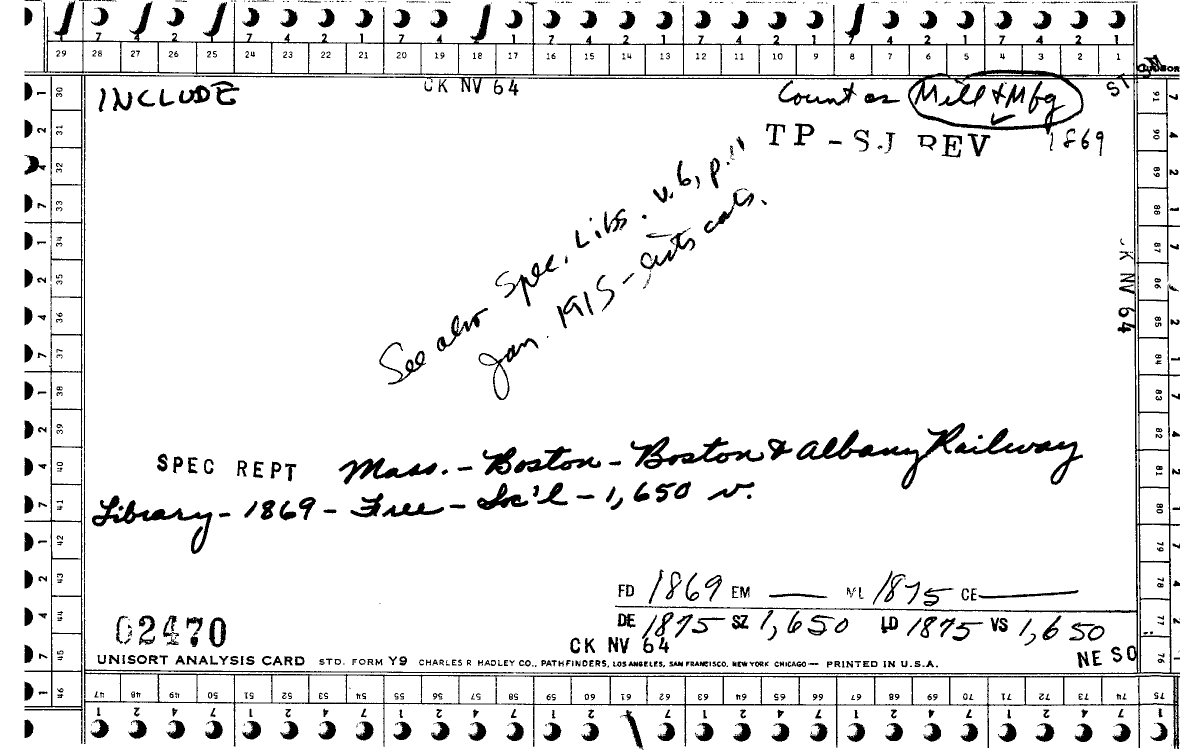 29 28 27 26 25 24 23 22 21 20 19 18 17 16 15 14 13 12 11 10 9 8 7 6 5 4 3 2 1
INCLUDE CK NV 64 Count as Mill & Mfg ST
TP-SJ REV 1869
See also Spec. Libs. v.6, p.11
Jan. 1915 - lists cats.
CK NV 64
SPEC REPT Mass. - Boston - Boston & Albany Railway
Library - 1869 - Free - Soc'l - 1,650 v.
FD 1869 EM — VL 1875 CE —
DE 1875 SZ 1,650 LD 1875 VS 1,650
02470
CK NV 64
NE SO
UNISORT ANALYSIS CARD STD. FORM Y9 CHARLES R HADLEY CO., PATHFINDERS, LOS ANGELES, SAN FRANCISCO, NEW YORK CHICAGO — PRINTED IN U.S.A.
30 31 32 33 34 35 36 37 38 39 40 41 42 43 44 45 46
47 48 49 50 51 52 53 54 55 56 57 58 59 60 61 62 63 64 65 66 67 68 69 70 71 72 73 74 75
91 90 89 88 87 86 85 84 83 82 81 80 79 78 77 76